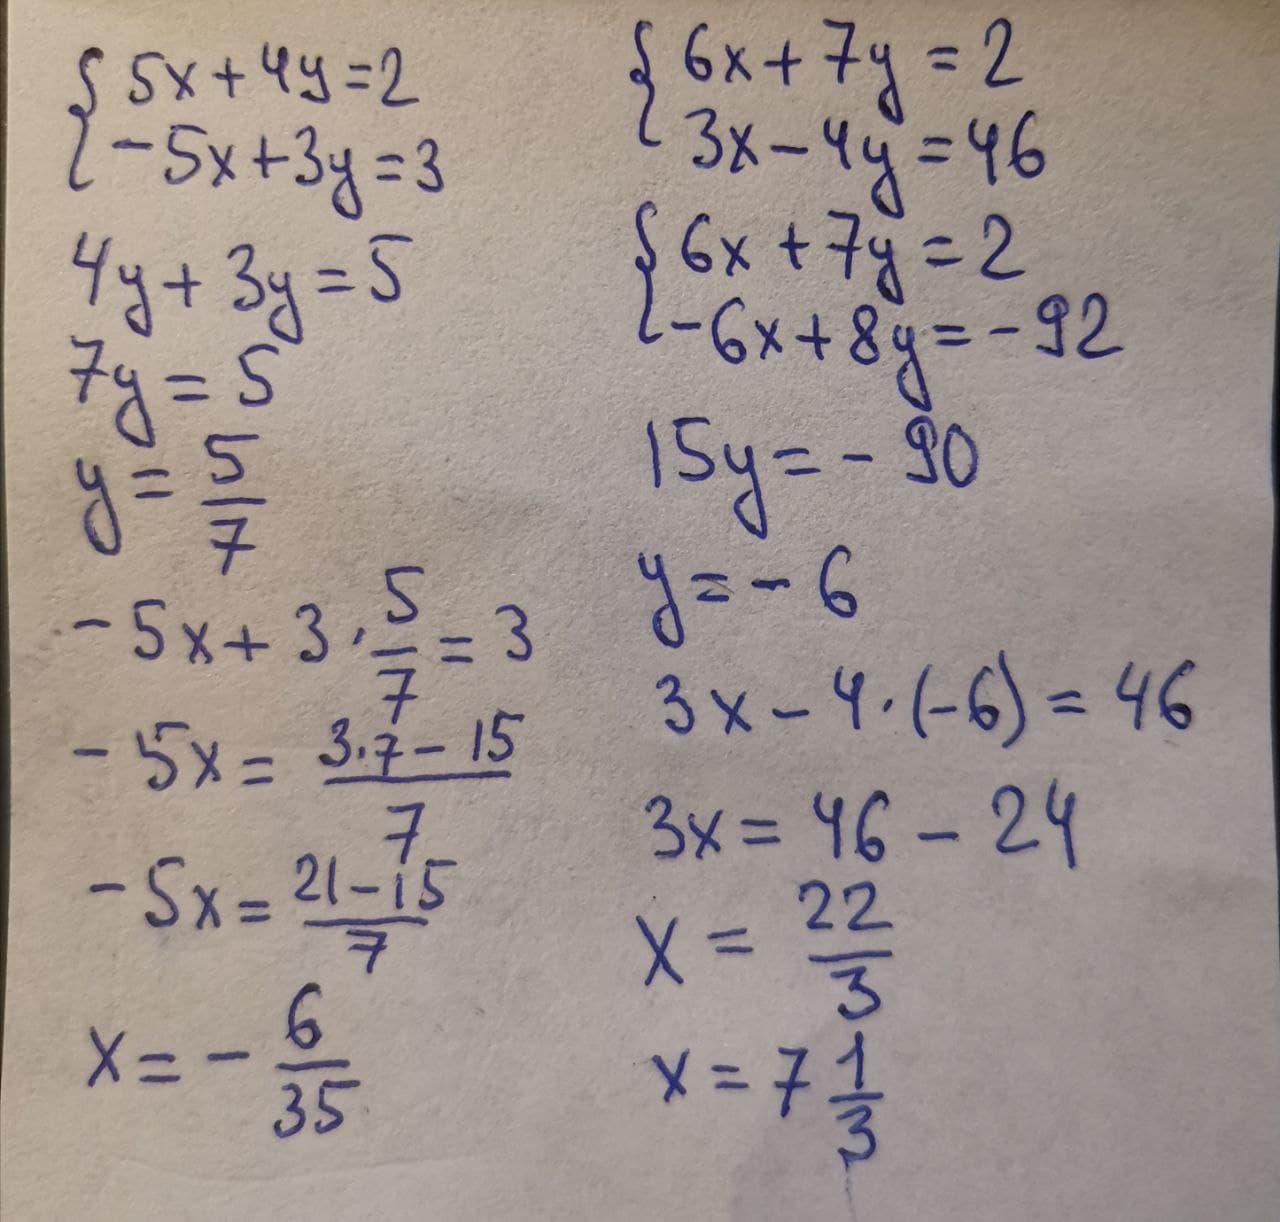 { 5x+4y=2
-5x+3y=3
4y+3y=5
7y=5
y=5/7
-5x+3·5/7=3
-5x=(3·7-15)/7
-5x=(21-15)/7
x=-6/35
{ 6x+7y=2
3x-4y=46
{ 6x+7y=2
-6x+8y=-92
15y=-90
y=-6
3x-4·(-6)=46
3x=46-24
x=22/3
x=7 1/3